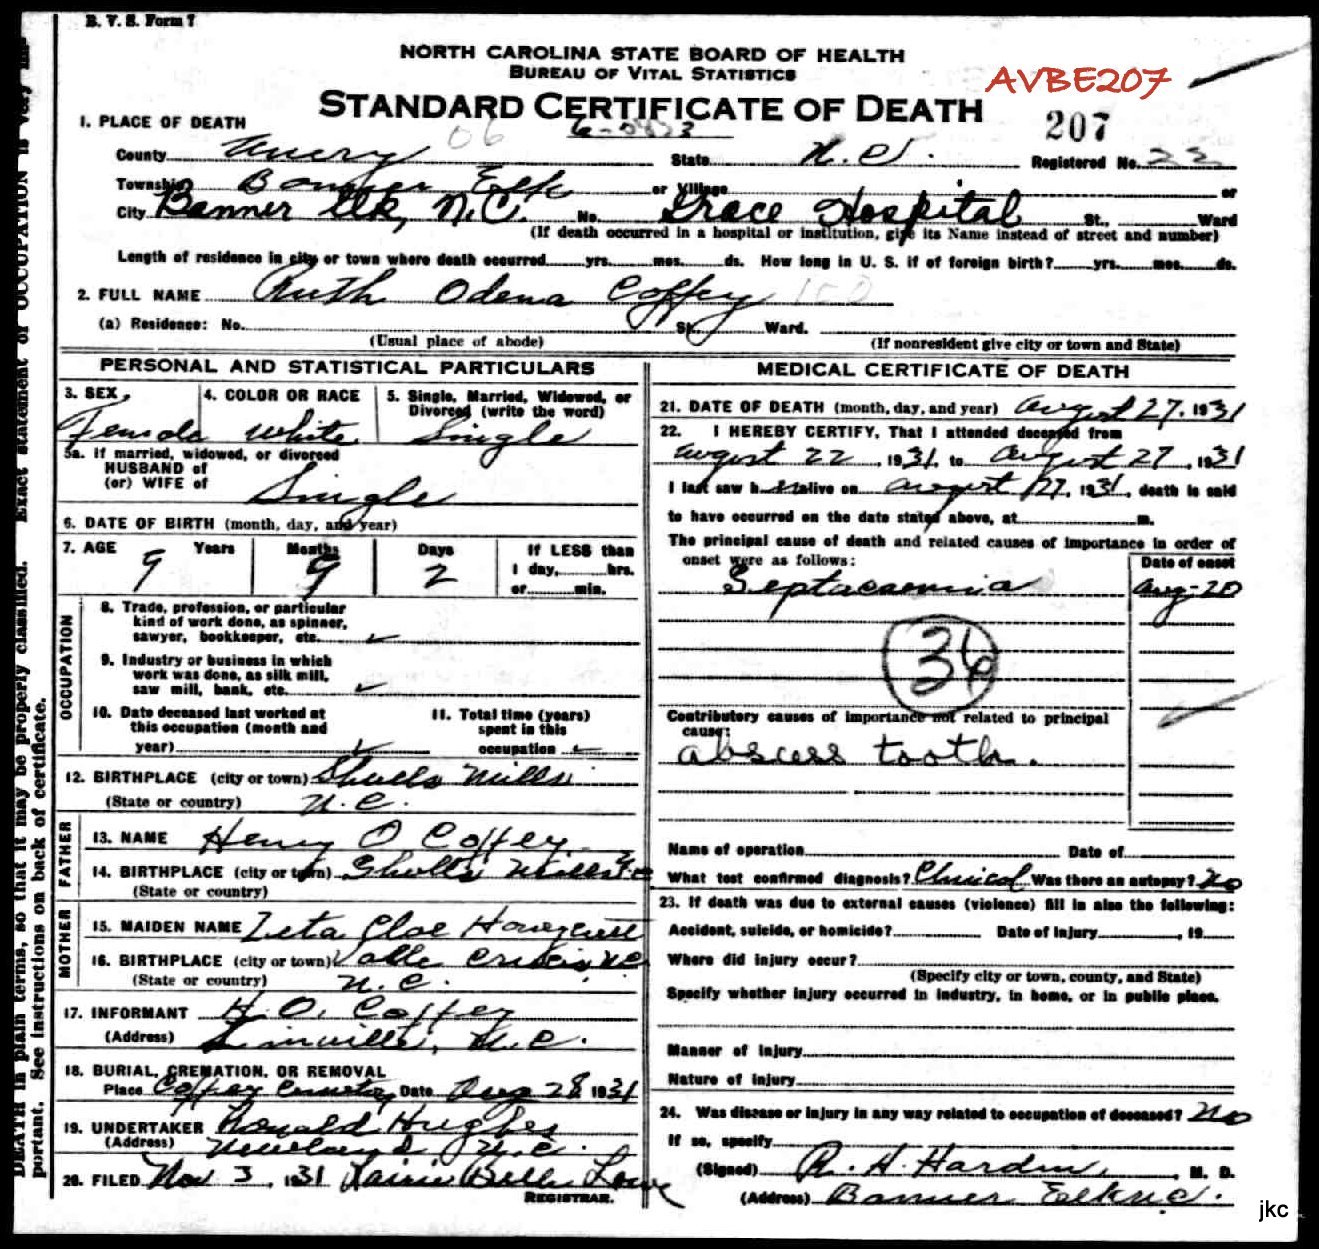 B. V. S. Form 7
NORTH CAROLINA STATE BOARD OF HEALTH
BUREAU OF VITAL STATISTICS
AVBE207
STANDARD CERTIFICATE OF DEATH
207
1. PLACE OF DEATH
06
County Avery State N.C. Registered No. 22
Township Banner Elk or Village or
City Banner Elk, N.C. No. Grace Hospital St., Ward
(If death occurred in a hospital or institution, give its Name instead of street and number)
Length of residence in city or town where death occurred yrs. mos. ds. How long in U. S. if of foreign birth? yrs. mos. ds.
2. FULL NAME Ruth Odena Coffey 150
(a) Residence: No. St., Ward.
(Usual place of abode) (If nonresident give city or town and State)
PERSONAL AND STATISTICAL PARTICULARS
3. SEX 4. COLOR OR RACE 5. Single, Married, Widowed, or
Divorced (write the word)
Female White Single
5a. If married, widowed, or divorced
HUSBAND of
(or) WIFE of Single
6. DATE OF BIRTH (month, day, and year)
7. AGE Years Months Days If LESS than
9 9 2 1 day, hrs.
or min.
OCCUPATION
8. Trade, profession, or particular
kind of work done, as spinner,
sawyer, bookkeeper, etc.
9. Industry or business in which
work was done, as silk mill,
saw mill, bank, etc.
10. Date deceased last worked at 11. Total time (years)
this occupation (month and spent in this
year) occupation
12. BIRTHPLACE (city or town) Shulls Mills
(State or country) N.C.
FATHER
13. NAME Henry O Coffey
14. BIRTHPLACE (city or town) Shulls Mills N.C.
(State or country)
MOTHER
15. MAIDEN NAME Zeta Cloe
16. BIRTHPLACE (city or town) Valle Crucis N.C.
(State or country) N.C.
17. INFORMANT H. O. Coffey
(Address) Linville, N.C.
18. BURIAL, CREMATION, OR REMOVAL
Place Coffey Cemetery Date Aug 28, 1931
19. UNDERTAKER Ronald Hughes
(Address) Newland N.C.
20. FILED Nov 3, 1931 Belle Lowe
REGISTRAR.
MEDICAL CERTIFICATE OF DEATH
21. DATE OF DEATH (month, day, and year) August 27, 1931
22. I HEREBY CERTIFY, That I attended deceased from
August 22, 1931, to August 27, 1931
I last saw h alive on August 27, 1931, death is said
to have occurred on the date stated above, at m.
The principal cause of death and related causes of importance in order of
onset were as follows: Date of onset
Septacaemia Aug-20
36
Contributory causes of importance not related to principal
cause:
abscess tooth.
Name of operation Date of
What test confirmed diagnosis? Clinical Was there an autopsy? No
23. If death was due to external causes (violence) fill in also the following:
Accident, suicide, or homicide? Date of injury , 19
Where did injury occur?
(Specify city or town, county, and State)
Specify whether injury occurred in industry, in home, or in public place.
Manner of injury
Nature of injury
24. Was disease or injury in any way related to occupation of deceased? No
If so, specify
(Signed) R. H. Hardin, M. D.
(Address) Banner Elk N.C.
DEATH in plain terms, so that it may be properly classified. Exact statement of OCCUPATION is very
portant. See instructions on back of certificate.
jkc